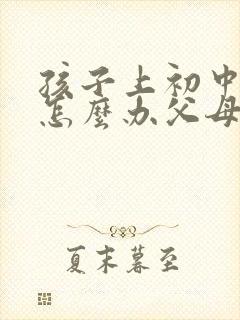 孩子上初中
怎麼办父母
夏末暮至